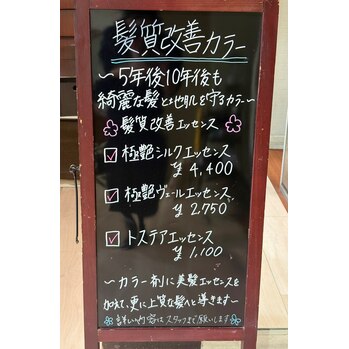 髪質改善カラー
〜5年後10年後も
綺麗な髪と地肌を守るカラー〜
髪質改善エッセンス
☑極艶シルクエッセンス
¥4,400
☑極艶ヴェールエッセンス
¥2,750
☑トステアエッセンス
¥1,100
〜カラー剤に美髪エッセンスを
加えて、更に上質な髪へと導きます〜
詳しい内容はスタッフまで願いします